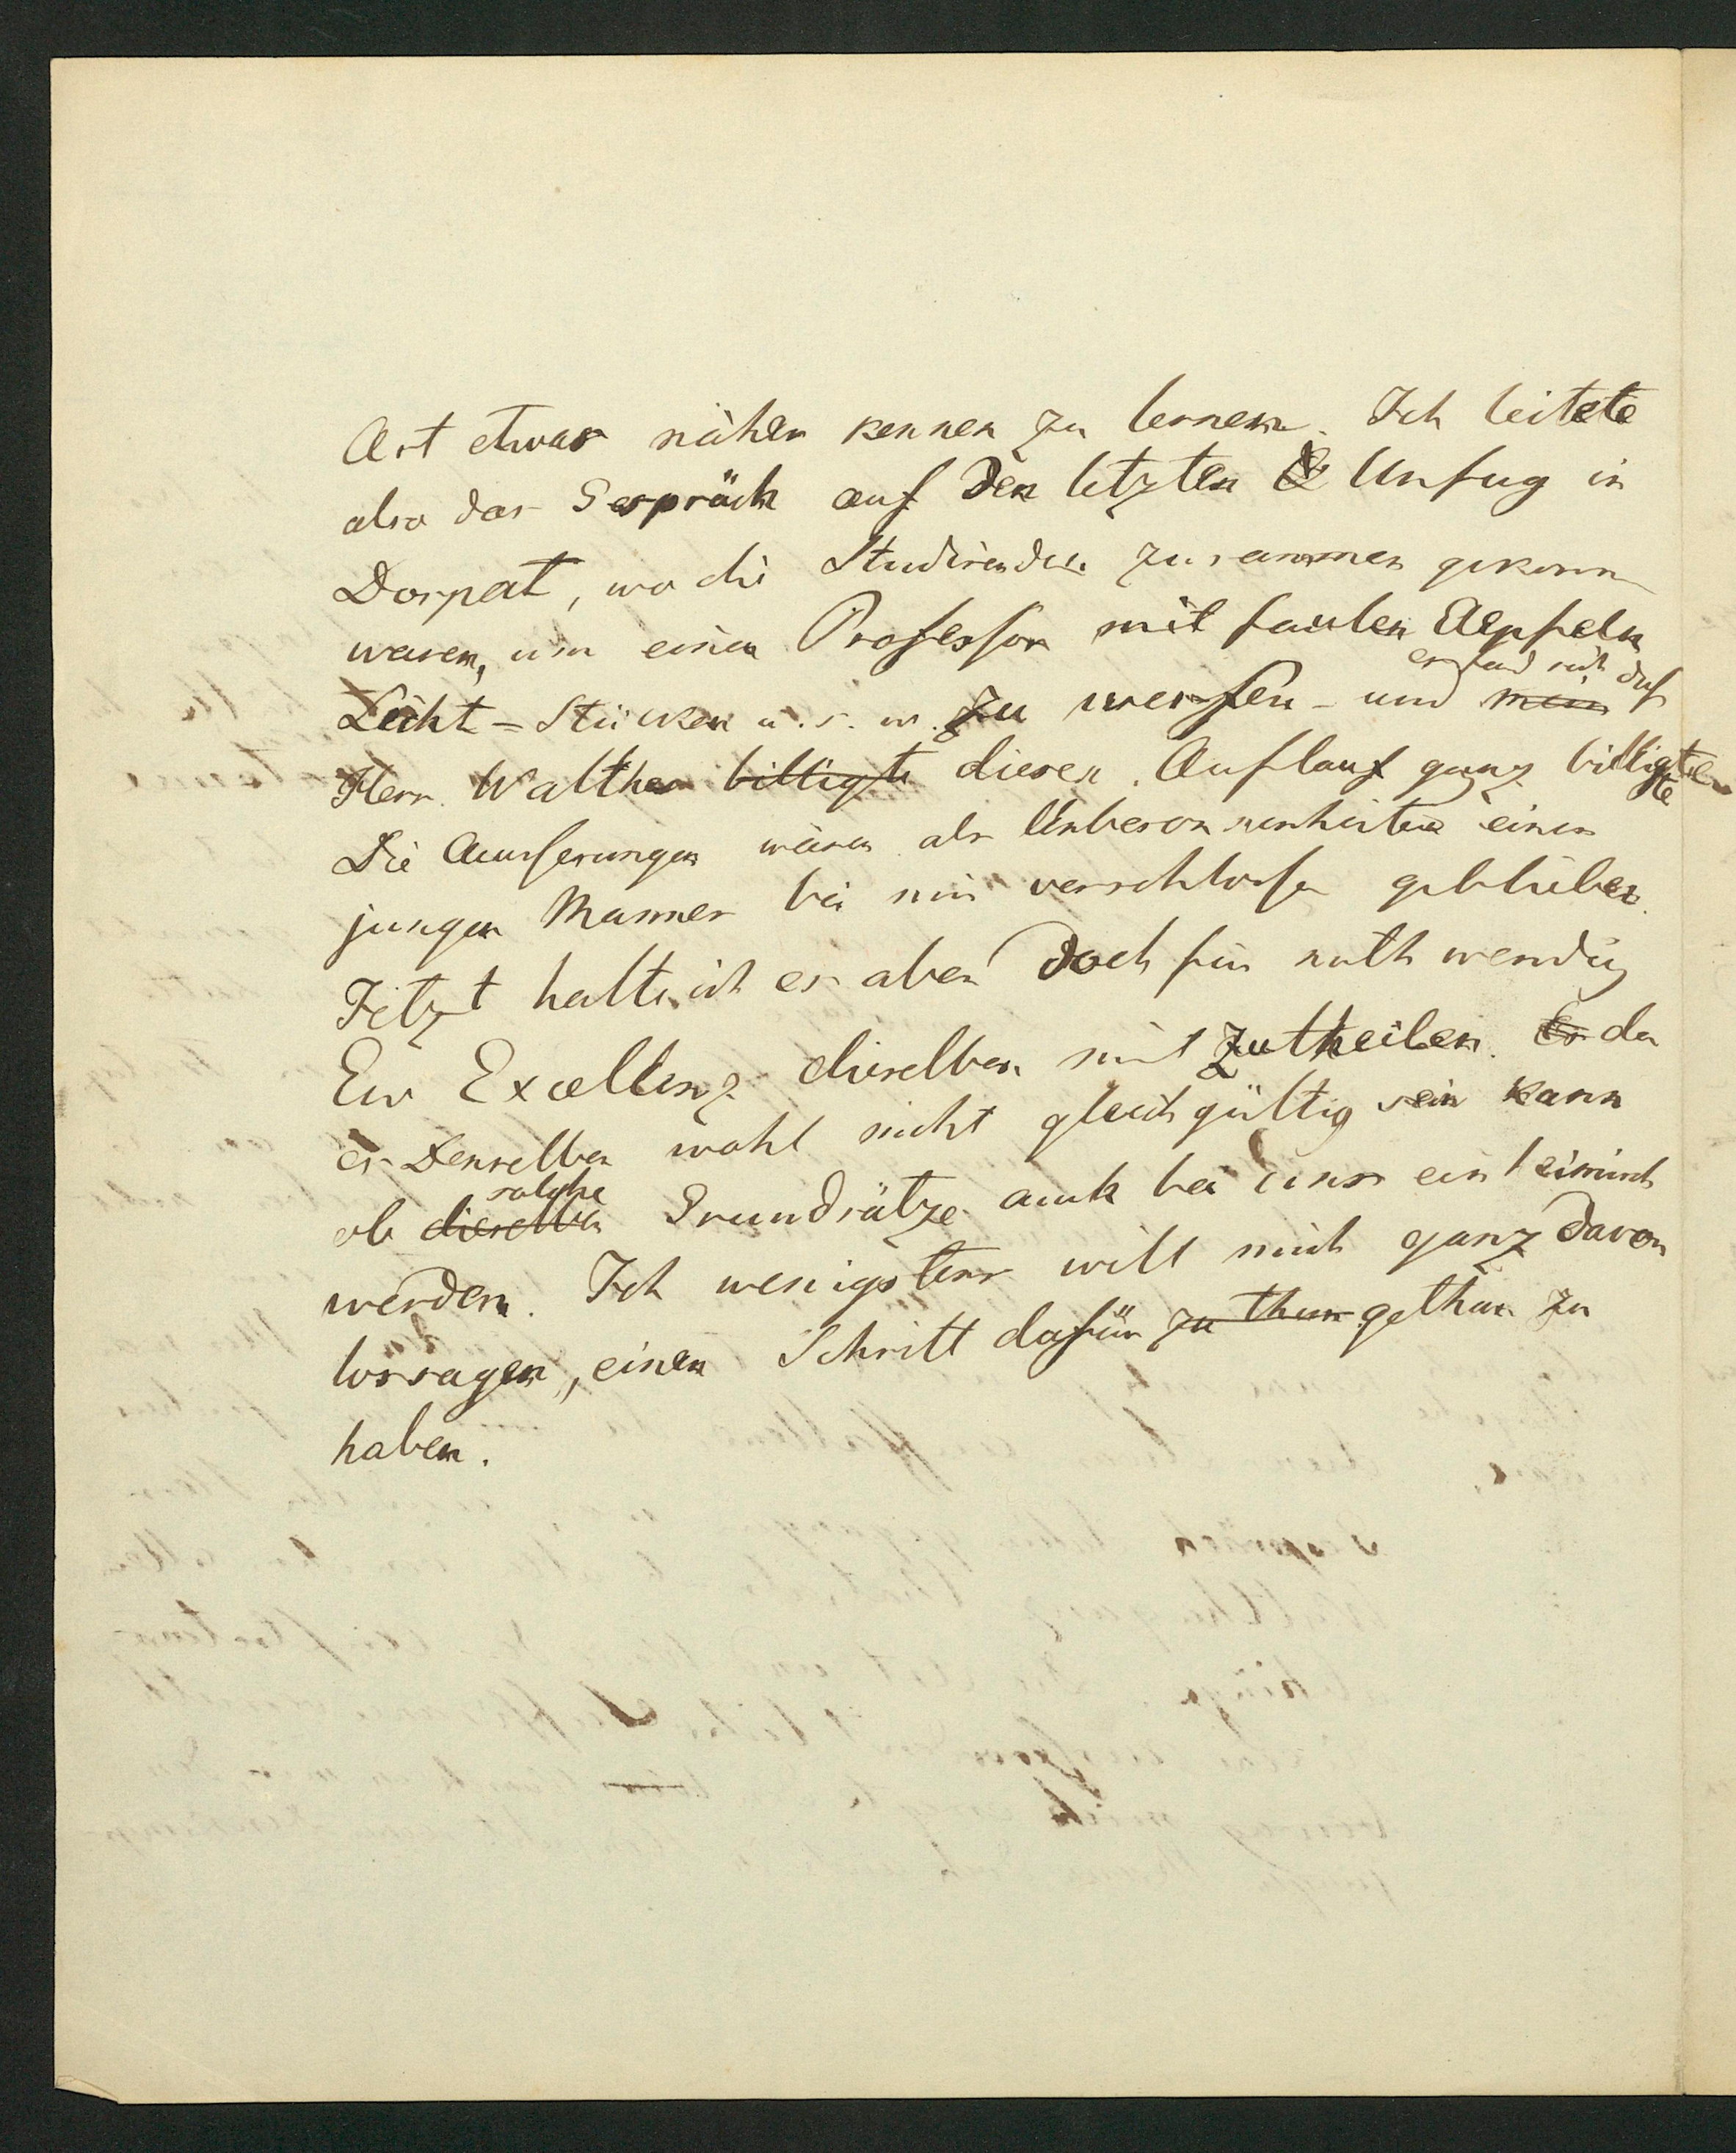 Art etwas näher kennen zu lernen. Ich leitete
also das Gespräch auf den letzten Unfug in
Dorpat, wo die Studirenden zusammen gekomm
waren, um einen Professor mit faulen Aepfeln
Licht-Stücken u. s. w. zu werfen - und es fand sich daß
Herr Walther billigte diesen Auflauf ganz billigte.
Die Aeusserungen wären als Unbesonnenheiten eines
jungen Mannes bei mir verschlossen geblieben.
Jetzt halte ich es aber doch für nothwendig
Ew Excellenz dieselben mit zutheilen. Es da
es Denselben wohl nicht gleichgültig sein kann
ob dieselben solche Grundsätze auch bei uns einheimisch
werden. Ich wenigstens will mich ganz davon
lossagen, einen Schritt dafür zu thun gethan zu
haben.